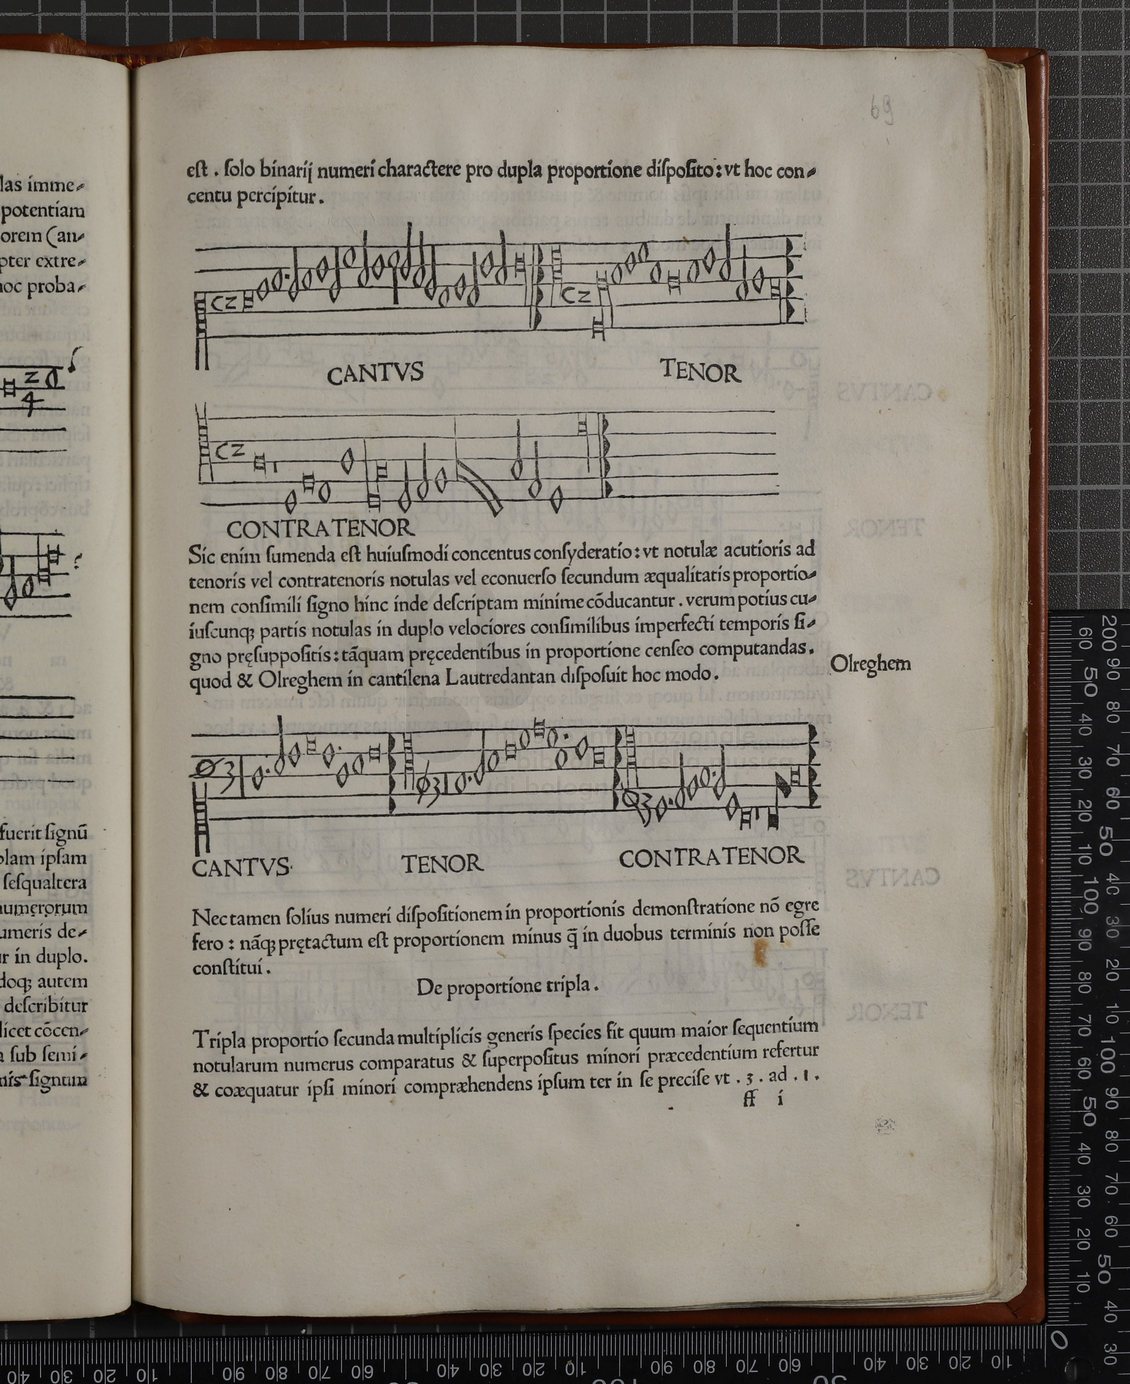 69
est . solo binarij numeri charactere pro dupla proportione disposito : vt hoc con-
centu percipitur .
CANTVS
TENOR
CONTRATENOR
Sic enim sumenda est huiusmodi concentus consyderatio : vt notulæ acutioris ad
tenoris vel contratenoris notulas vel econuerso secundum æqualitatis proportio-
nem consimili signo hinc inde descriptam minime cōducantur . verum potius cu-
iuscunqȝ partis notulas in duplo velociores consimilibus imperfecti temporis si-
gno pręsuppositis : tāquam pręcedentibus in proportione censeo computandas .
quod & Olreghem in cantilena Lautredantan disposuit hoc modo .
Olreghem
CANTVS
TENOR
CONTRATENOR
Nec tamen solius numeri dispositionem in proportionis demonstratione nō egre
fero : nāqȝ prętactum est proportionem minus q̄ in duobus terminis non posse
constitui .
De proportione tripla .
Tripla proportio secunda multiplicis generis species fit quum maior sequentium
notularum numerus comparatus & superpositus minori præcedentium refertur
& coæquatur ipsi minori compræhendens ipsum ter in se precise vt . 3 . ad . 1 .
ff i
las imme-
potentiam
orem Can-
pter extre-
hoc proba-
fuerit signū
plam ipsam
sesqualtera
numerorum
umeris de-
ur in duplo.
doqȝ autem
describitur
licet cōcen-
a sub semi-
nis signum